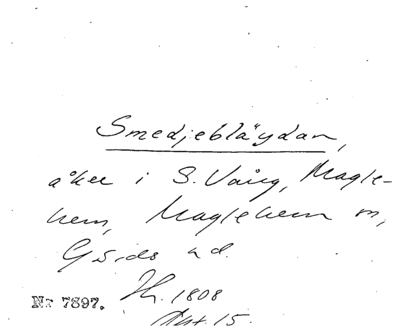 Smedjebläydan,
åker i S. Vång, Magle-
hem, Maglehem sn,
Gärds hd.
Nr 7897. Hr. 1808
Akt. 15.